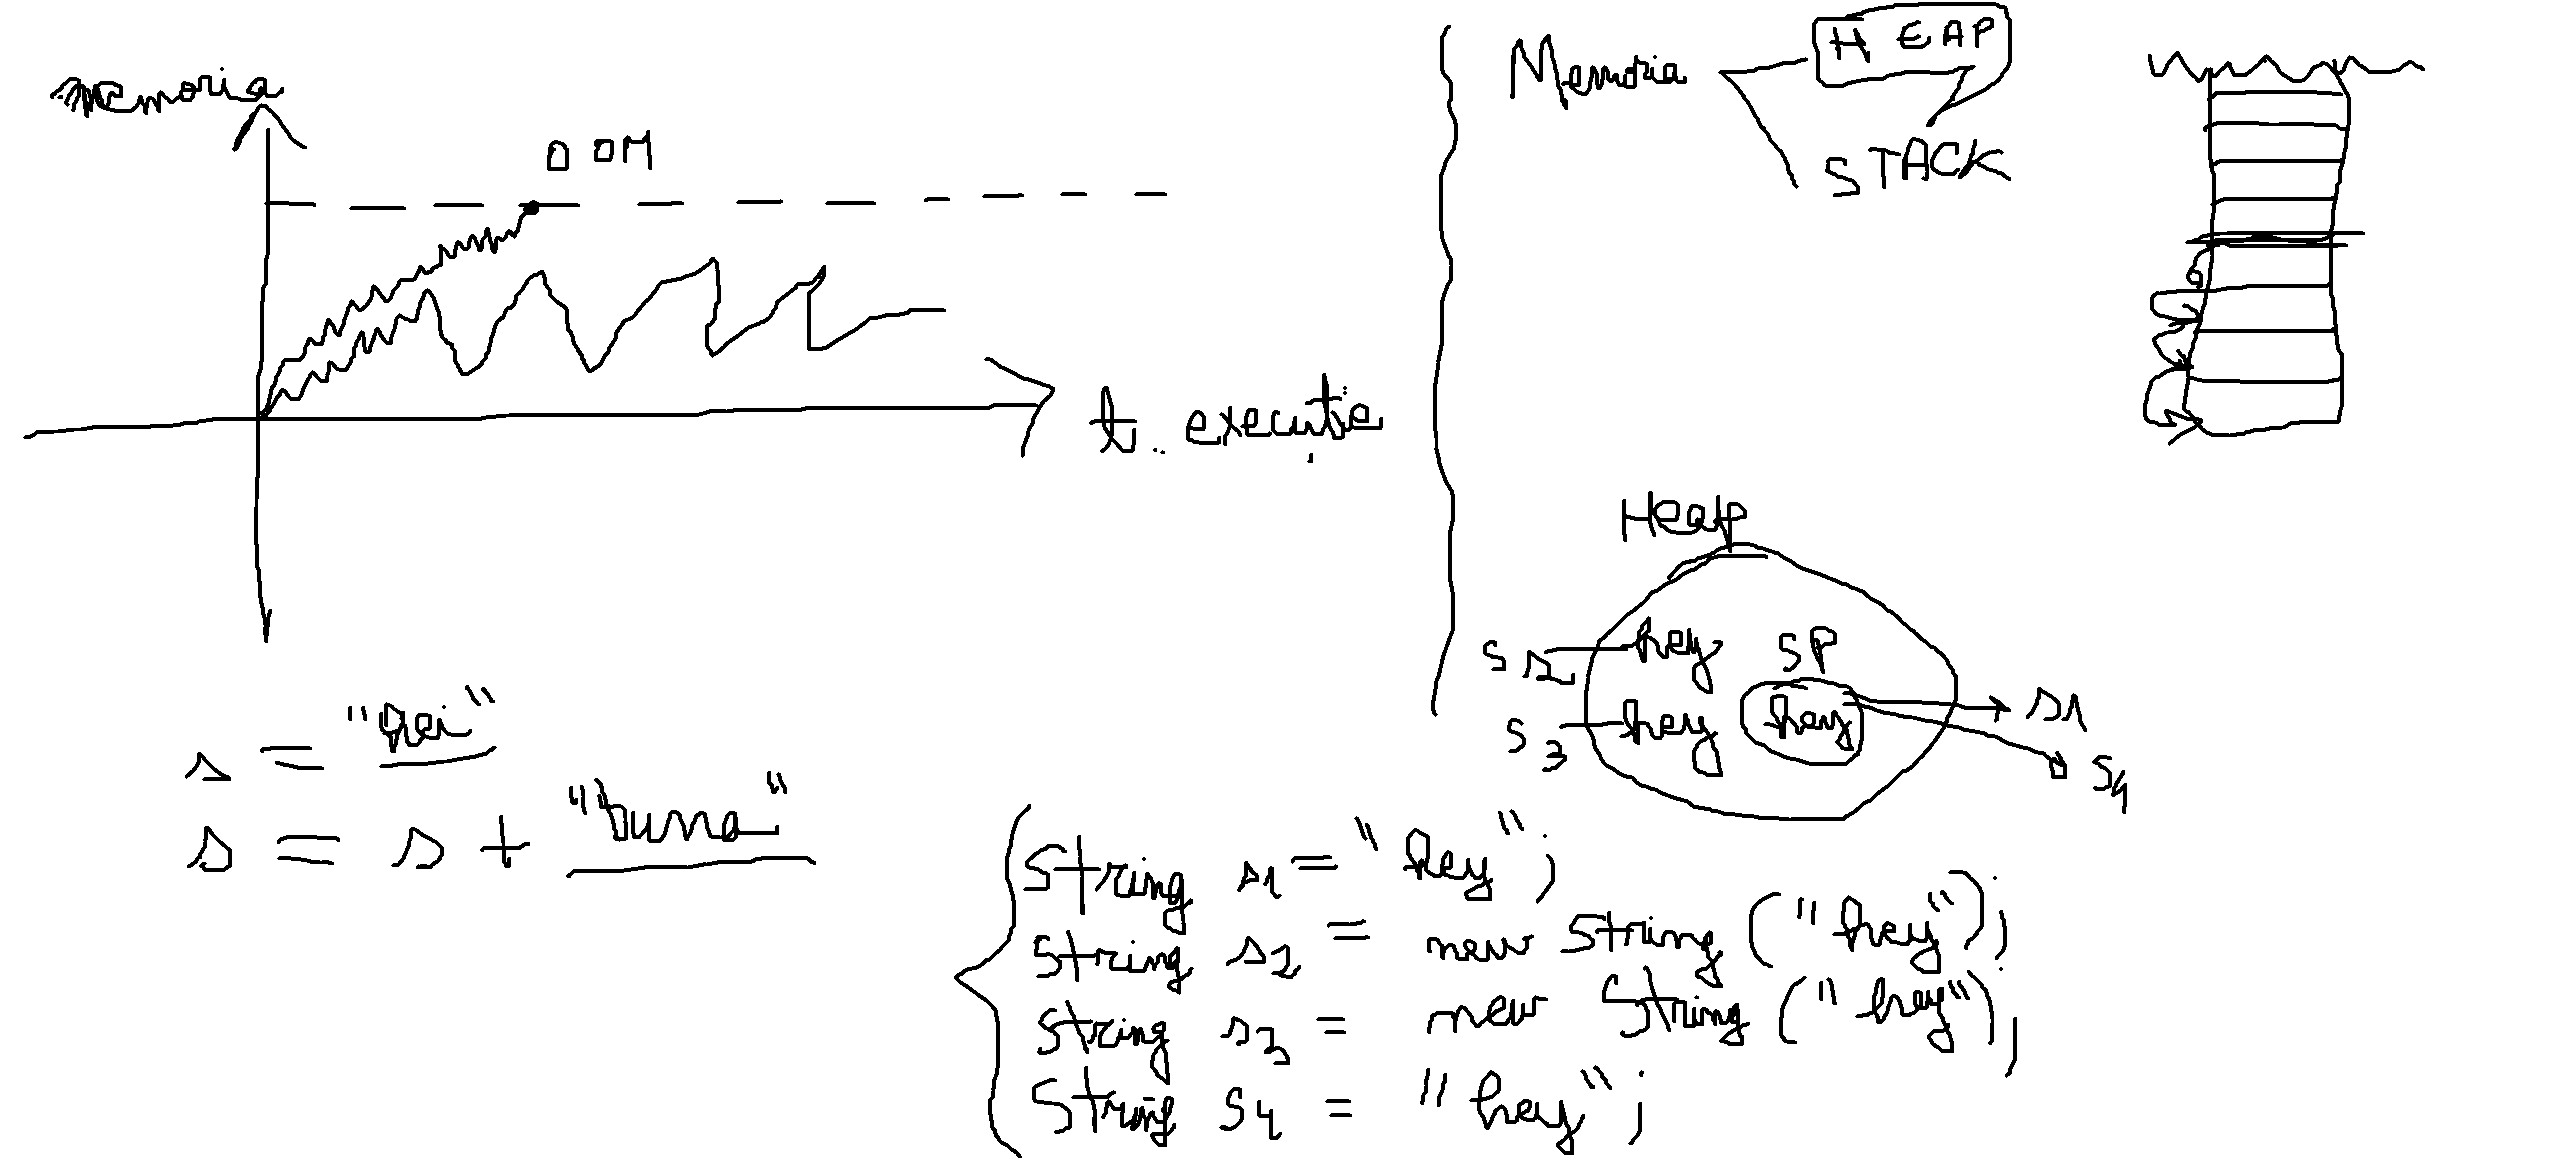 memoria
OOM
t. execuție
s = "hei"
s = s + "buna"
Memoria
HEAP
STACK
Heap
s2 hey SP
s3 hey hey s1
s4
String s1 = "hey";
String s2 = new String ("hey");
String s3 = new String ("hey");
String s4 = "hey";